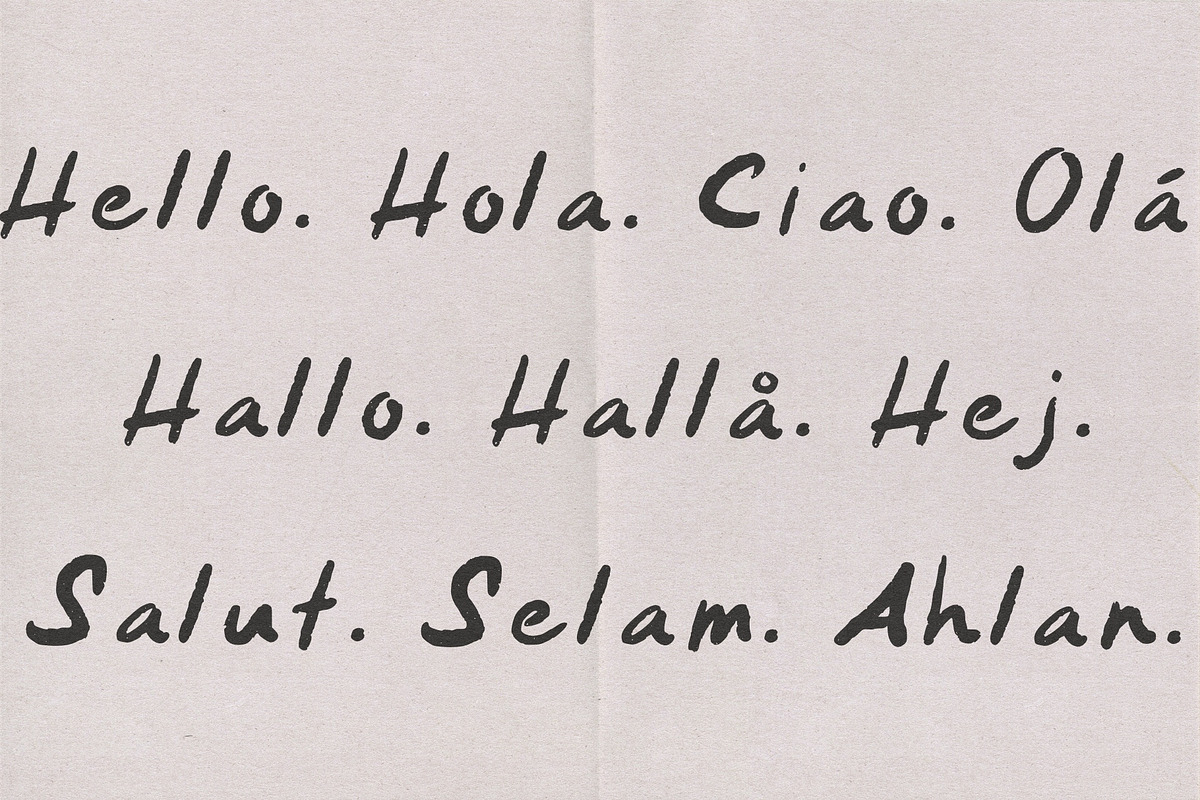 Hello. Hola. Ciao. Olá
Hallo. Hallå. Hej.
Salut. Selam. Ahlan.